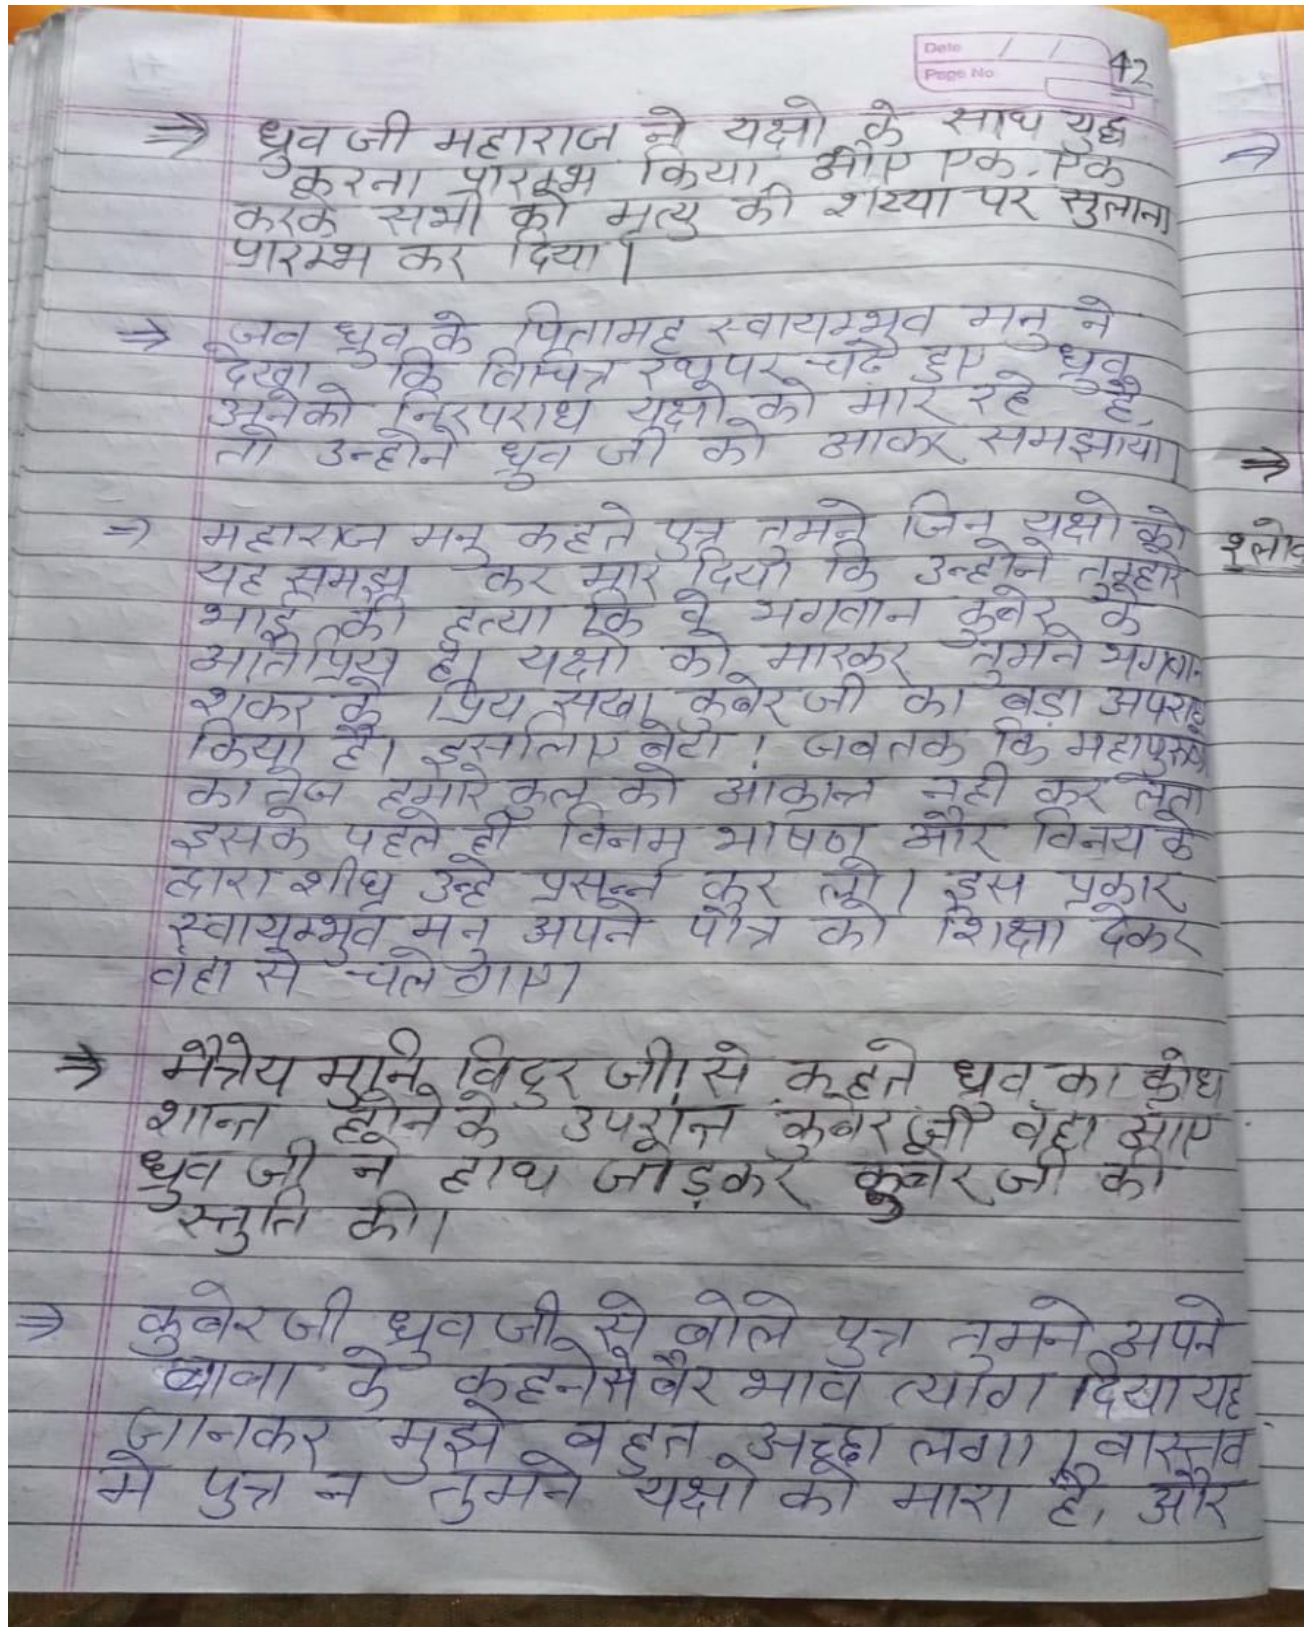 Date / /
Page No
42
⇒ ध्रुव जी महाराज ने यक्षो के साथ युद्ध
करना प्रारम्भ किया और एक-एक
करके सभी को मृत्यु की शय्या पर सुलाना
प्रारम्भ कर दिया।
⇒ जब ध्रुव के पितामह स्वायम्भुव मनु ने
देखा कि विचित्र रथ पर चढे हुए ध्रुव
अनेको निरपराध यक्षो को मार रहे है,
तो उन्होने ध्रुव जी को आकर समझाया।
⇒ महाराज मनु कहते पुत्र तुमने जिन यक्षो को
यह समझ कर मार दिया कि उन्होने तुम्हारे
भाई की हत्या कि वे भगवान कुबेर के
अतिप्रिय है। यक्षो को मारकर तुमने भगवान
शंकर के प्रिय सखा कुबेर जी का बड़ा अपराध
किया है। इसलिए बेटा ! जबतक कि महापुरूष
का तेज हमारे कुल को आक्रान्त नही कर लेता
इसके पहले ही विनम्र भाषण और विनय के
द्वारा शीघ्र उन्हे प्रसन्न कर लो। इस प्रकार
स्वायम्भुव मनु अपने पौत्र को शिक्षा देकर
वंहा से चले गाए।
⇒ मैत्रेय मुनि विदुर जी। से कहते ध्रुव का क्रोध
शान्त होने के उपरांत कुबेर जी वंहा आए
ध्रुव जी ने हाथ जोड़कर कुबेर जी की
स्तुति की।
⇒ कुबेर जी ध्रुव जी से बोले पुत्र तुमने अपने
बाबा के कहने से बैर भाव त्याग दिया यह
जानकर मुझे बहुत अच्छा लगा। वास्तव
मे पुत्र न तुमने यक्षो को मारा है, और
⇒
⇒
श्लो